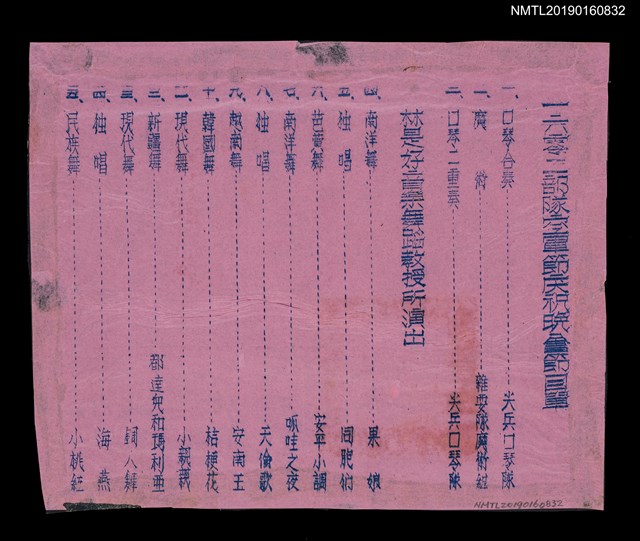 NMTL20190160832
一六零二部隊空軍節庆祝晚會節目單
一、口琴合奏 尖兵口琴隊
二、魔術 雜耍隊魔術組
三、口琴二重奏 尖兵口琴隊
林是好音樂舞踏教授所演出
四、南洋舞 果娘
五、独唱 同胞们
六、苗黄舞 安平小調
七、南洋舞 哌哇之夜
八、独唱 天倫歌
九、越南舞 安南王
十、韓國舞 桔梗花
一、現代舞 小親親
二、新疆舞 都達兒和瑪利亜
三、現代舞 八舞
四、独唱 海燕
五、民族舞 小桃紅
NMTL20190160832